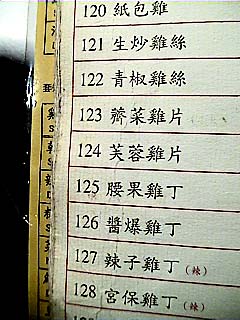 120 紙包雞
121 生炒雞絲
122 青椒雞絲
123 薺菜雞片
124 芙蓉雞片
125 腰果雞丁
126 醬爆雞丁
127 辣子雞丁(辣)
128 宮保雞丁(辣)